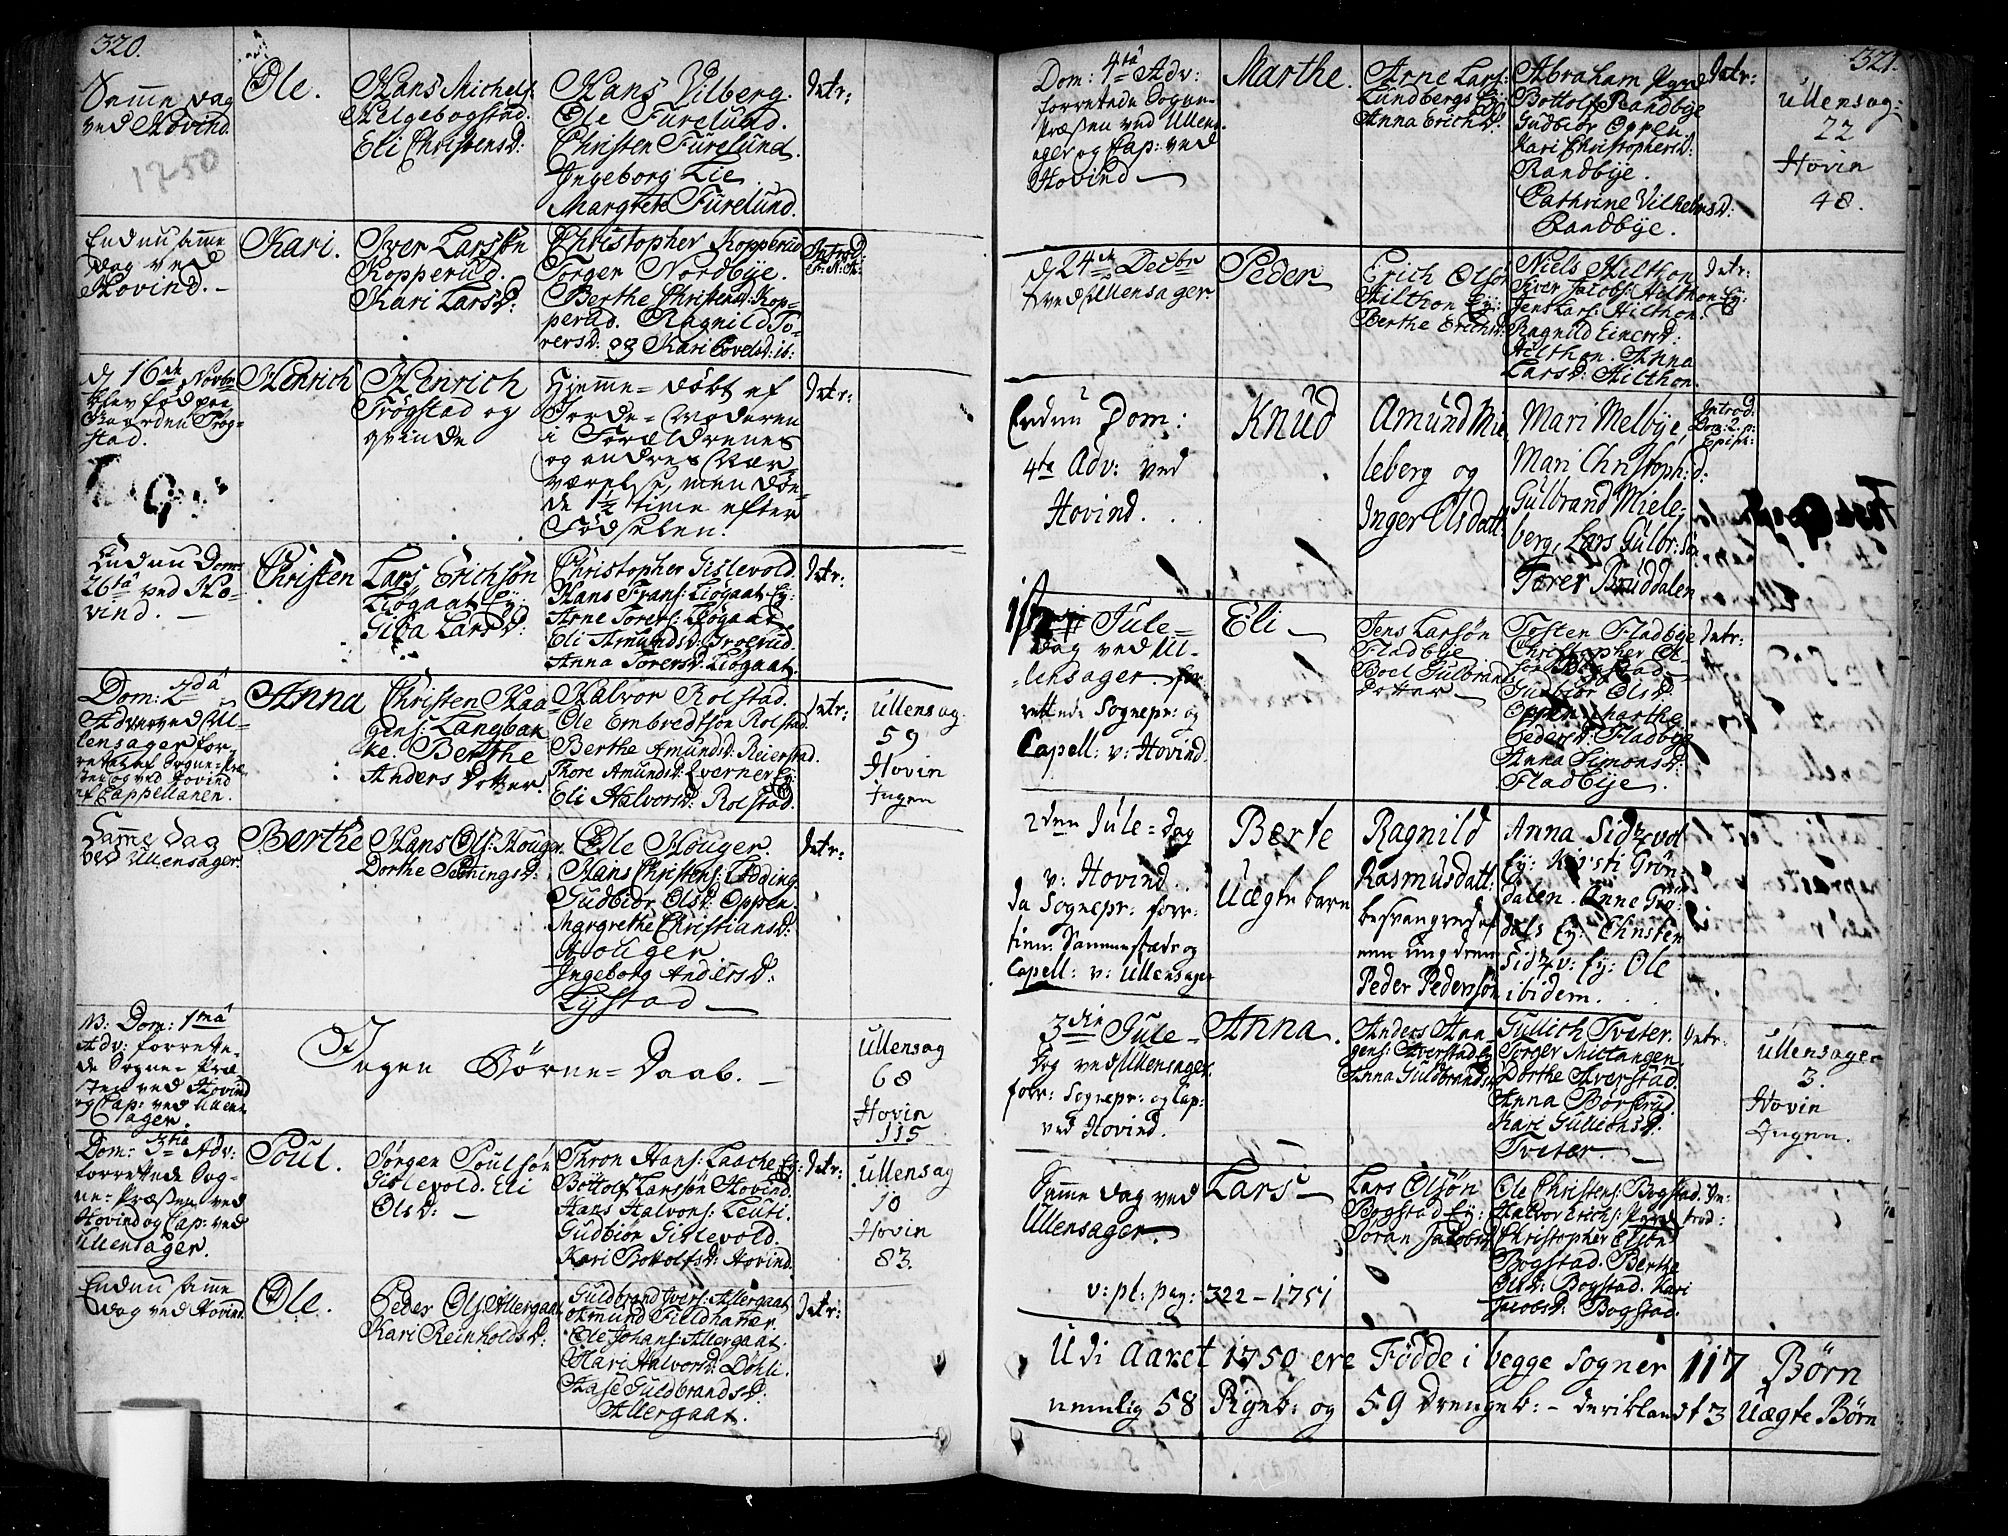 320.
Samme dag
ved Hovind.
1750
Ole.
Hans Michels:
Helgebogstad.
Eli Christensd:
Hans Vilberg.
Ole Furelund.
Christen Furelund.
Ingeborg Lie
Margrete Furelund.
Intr:
Endnu samme
dag ved
Hovind. –
Kari.
Iver Larssøn
Kopperud.
Kari Larsd:
Christopher Kopperud
Torger Nordbye.
Berthe Christensd: Kop-
perud. Ragnild To-
rersd: og Kari Povelsd: ib:
Introd:
d 16de Novbr
blev fød paa
Gaarden Trøg-
stad.
Henrich
Henrich
Trøgstad og
qvinde
Hjemme-døbt af
Jorde-Moderen
i Forældrenes
og andres Nær
værelse, men døe-
de 1½ time efter
Fødselen.
Intr:
Endnu Dom:
26ta ved Ho-
vind. –
Christen
Lars Erichsøn
Liøgaat Ej:
Giba Larsd:
Christopher Gislevold
Hans Frans: Liøgaat Ej:
Arne Torers: Liøgaat
Eli Amundsd: Groerud.
Anna Torersd: Liøgaat.
Intr:
Dom: 2dâ
Adv: ved Ul-
lensager for-
rettet af Sogne-Præ-
sten og ved Hovind
af Cappellanen.
Anna
Christen Haa-
gens: Langbak
ke. Berthe
Anders Dotter.
Halvor Rolstad.
Ole Embredtsøn Rolstad.
Berthe Amundsd: Reierstad.
Thore Amundsd: Kverner Ej:
Eli Halvorsd: Rolstad.
Intr:
Ullensag.
59
Hovin
Ingen
Samme dag
ved Ullensager.
Berthe
Hans Ols: Houger.
Dorthe Sethingsd:
Ole Houger.
Hans Christens: Lodding.
Gudbiør Olsd: Oppen.
Margrethe Christiansd:
Holiger
Ingeborg Andersd:
Lystad –
Intr:
NB: Dom: 1mâ
Adv: forrette-
de Sogne-Præ-
sten ved Hovind
og Cap: ved Ullen-
sager.
Ingen Børne-Daab. –
Ullensag
68
Hovin
115
Dom: 3tiâ Adv:
forrettede Sog-
ne-Præsten ved
Hovind og Cap: ved
Ullensager.
Poul.
Jørgen Poulsøn
Gislevold. Eli
Olsd: –
Thron Hans: Laache Ej:
Bottolf Larssøn Hovind.
Hans Halvors: Leuti.
Gudbiør Gislevold.
Kari Bottolfsd: Hovind.
Intr:
Ullensag
10
Hovin
83.
Endnu samme
dag ved Hovind.
Ole.
Peder Ols: Allergaat
Kari Reinholdsd:
Guldbrand Ivers: Allergaat
Amund Fieldhamer.
Ole Johans: Allergaat.
Mari Halvorsd: Døhli.
Aase Guldbrandsd:
Allergaat.
Intr:
321.
Dom: 4tâ Adv:
forrettede Sogne-
Præsten ved Ullens-
ager og Cap: ved
Hovind –
Marthe.
Arne Lars:
Lundbergs Ej:
Anna Erichsd:
Abraham
Bottolf Randbye
Gudbiør Oppen.
Kari Christophersd:
Randbye.
Cathrine Vilhelmsd:
Randbye.
Intr:
Ullensag:
22
Hovin
48.
d 24de Decbr
ved Ullensager.
Peden
Erich Olsøn
Hilthon Ej:
Berthe Erichsd:
Niels Hilthon
Iver Jacobs: Hilthon Ej:
Jens Lars: Hilthon.
Ragnild Einersd:
Hilthon. Anna
Larsd: Hilthon.
Intr:
Endnu Dom:
4te Adv: ved
Hovind.
Knud
Amund Mie-
leberg og
Inger Olsdatt:
Mari Melbye,
Mari Christoph:d:
Gulbrand Miele-
berg, Lars Gulbr: Søn
Torer Bruddalen
Introd:
Dom: 2. p:
Epiph:
1ste Jule-
dag ved Ul-
lensager. for-
rettede Sognepr: og
Capell: v: Hovind.
Eli –
Jens Larsøn
Fladbye
Boel Gulbrands
dotter –
Tosten Fladbye
Christopher Ol-
søn Bogstad.
Gudbiør Olsd:
Oppen. Marthe
Pedersd: Fladbye
Anna Simonsd:
Fladbye.
Intr:
2den Jule-dag
v: Hovind.
da Sognepr: forr-
tinen: sammestæds og
Capell: v: Ullensager
Berte
Uægte barn
Ragnild
Rasmusdatt:
besvangred af
een ung dreng
Peder Pedersøn
Anna Sidzvol
Ej: Kirsti Grøn
dalen. Anne Grø:
dals Ej: Christen
Sidzv: Ej: Ole
ibidem.
3die Jule-
Dag ved Ullensager
forr: Sognepr: og Cap:
ved Hovind.
Anna.
Anders Haa-
gens: Averstad Ej
Anna Guldbrandsd:
Gullich Tveter.
Torger Mittangen.
Dorthe Averstad.
Anna Børsrud.
Kari Gullichsd:
Tveter. –
Intr:
Ullensager
3.
Hovin
Ingen.
Samme dag ved
Ullensager.
Lars –
Lars Olsøn
Bogstad Ej:
Søran Jacobsd
Ole Christens: Bogstad.
Halvor Erichs:
Christopher Elsøn
Bogstad. Berthe
Olsd: Bogstad. Kari
Jacobsd: Bogstad.
In-
trod:
v: pl: pag: 322 – 1751
Udi Aaret 1750 ere Fødde i begge Sogner 117 Børn
nemlig 58 Pigeb: og 59 Drengeb: – deriblandt 3 Uægte Børn